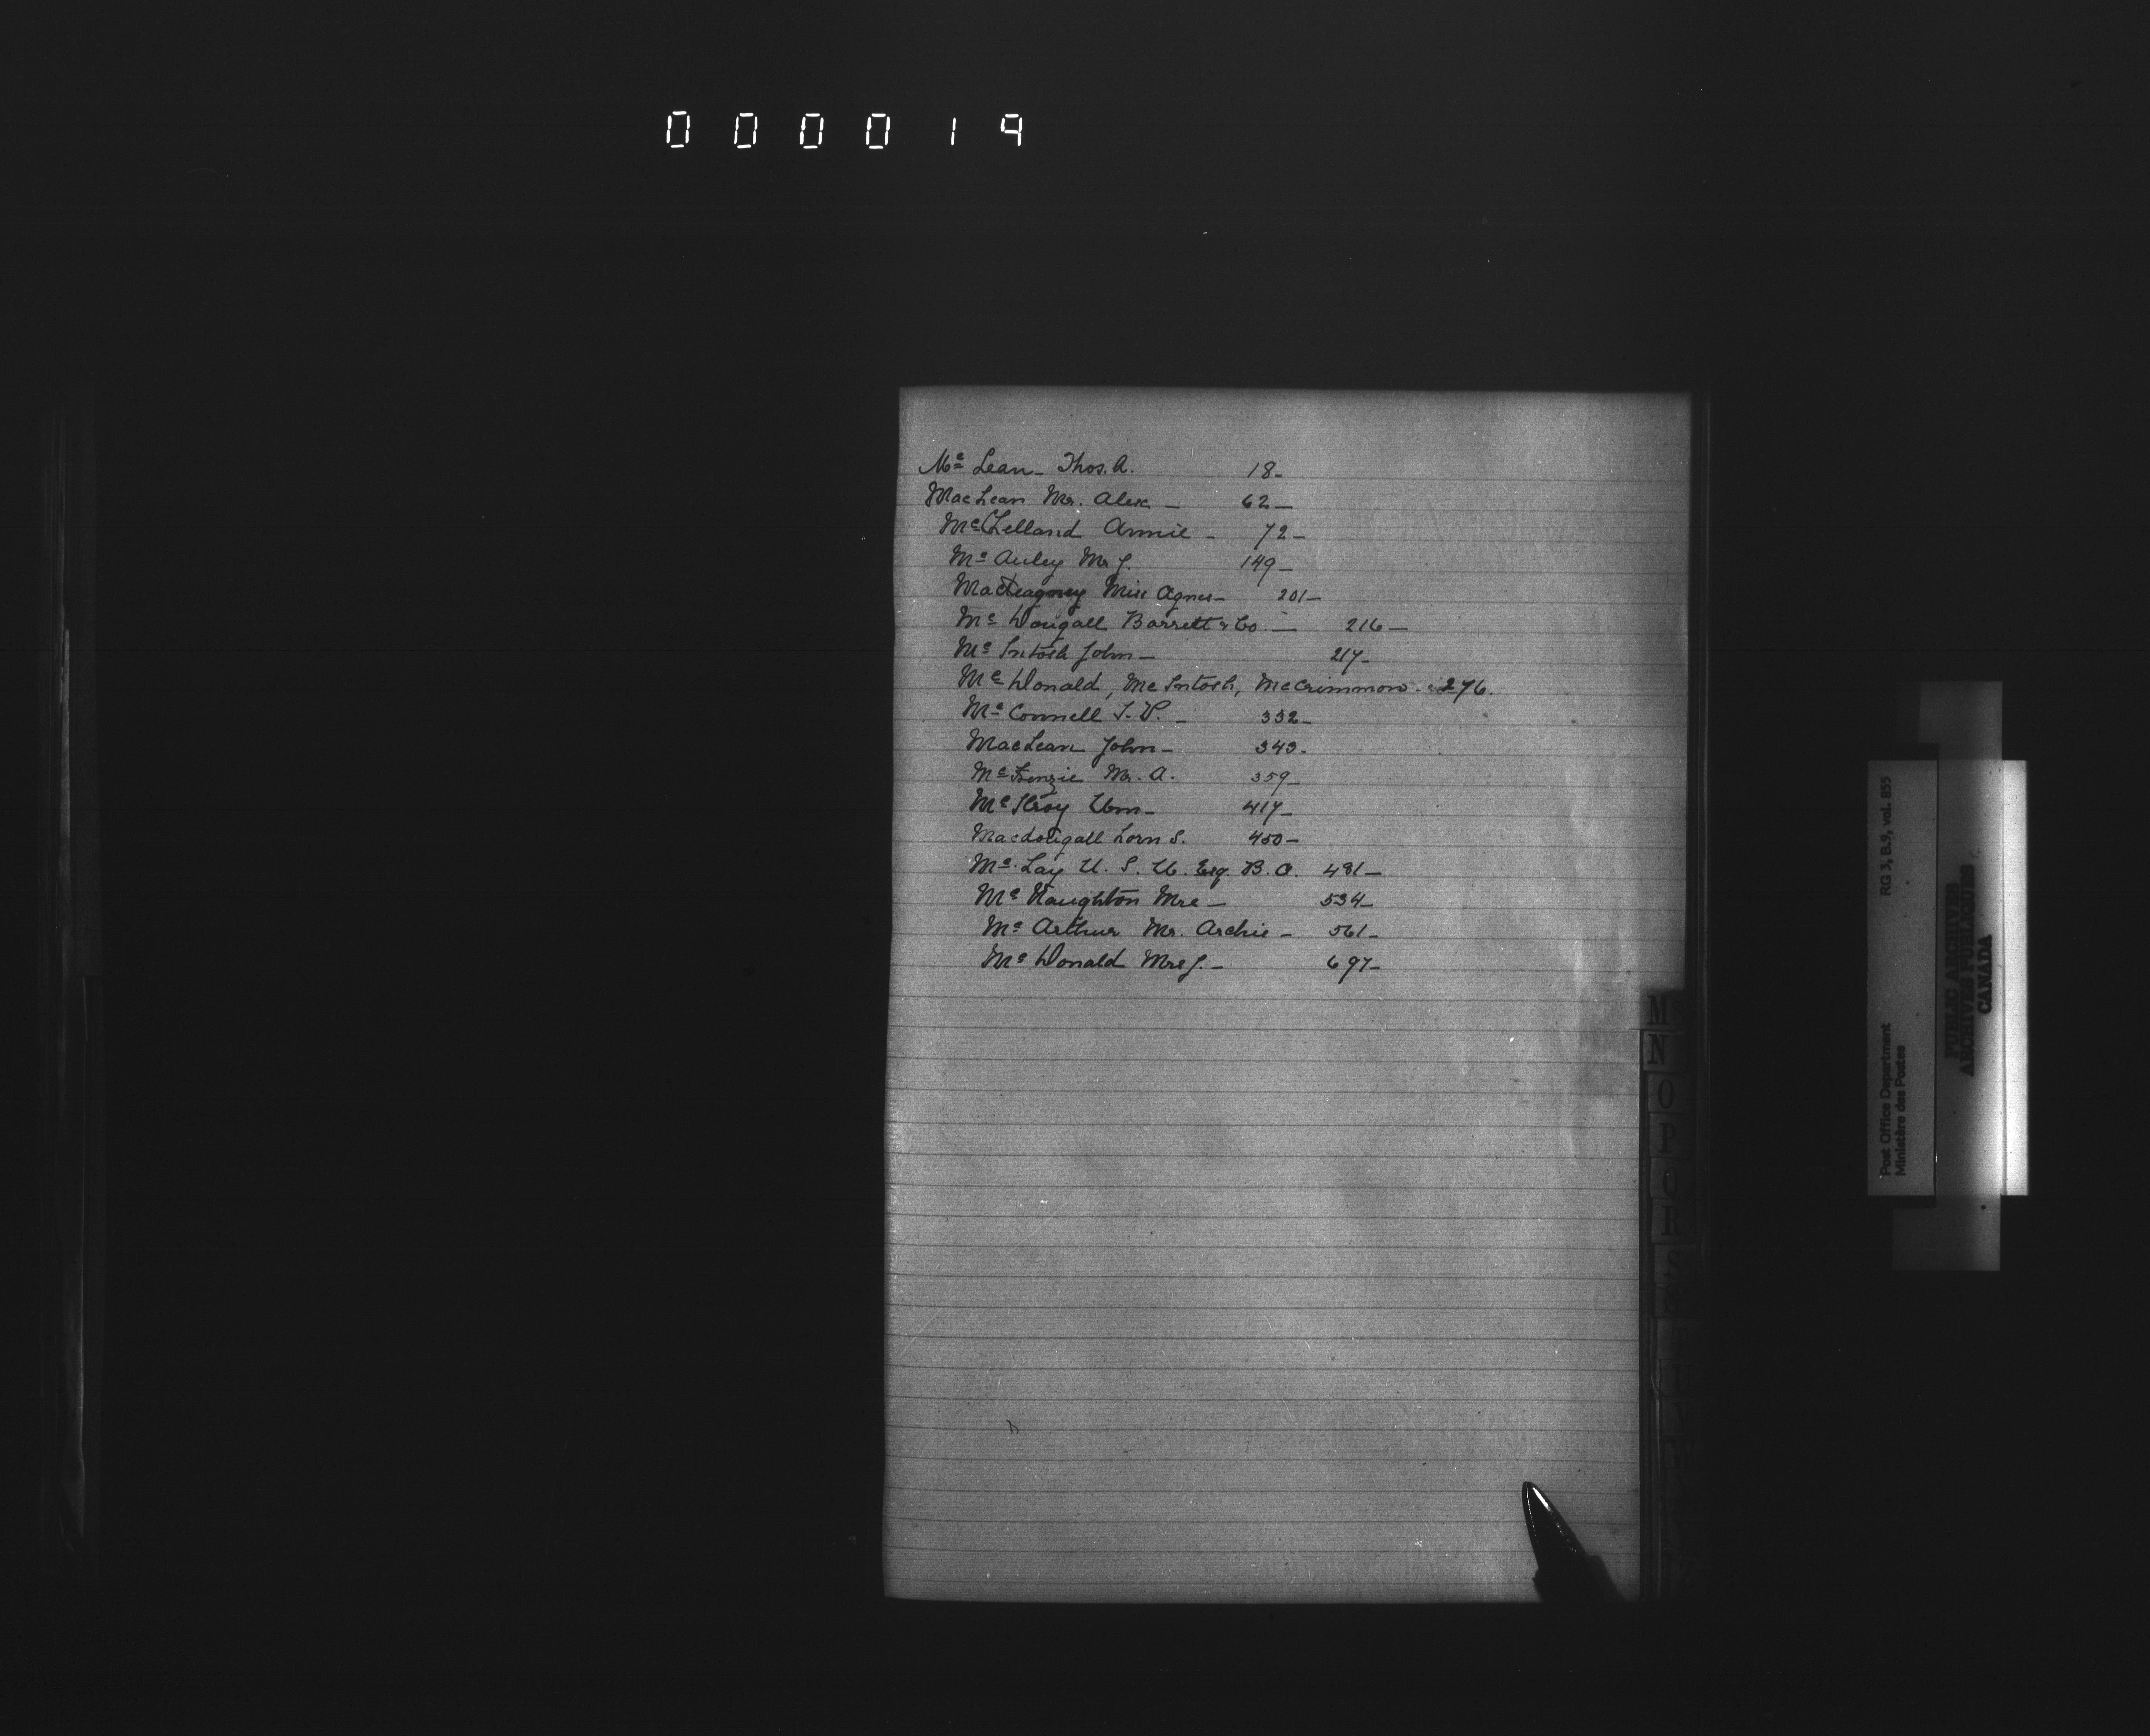 000019
Mc Lean - Thos. A. 18-
MacLean Mr. Alex - 62-
McClelland Annie - 72-
Mc Auley Mr J. 149-
Miss Agnes - 201-
Mc Dougall Barrett & Co. - 216-
Mc Intosh John - 217-
Mc Donald, McIntosh, McCrimmon - 276.
Mc Connell 332-
MacLean John - 343-
McKenzie Mr. A. 359-
McIlroy Wm - 417-
Macdougall Lorn S. 450-
Mc Lay W. S. W. Esq. B. A. 481-
Mc Naughton Mrs - 534-
Mc Arthur Mr. Archie - 561-
Mc Donald Mrs J. - 697-
M
N
O
P
Q
R
S
Post Office Department
Ministère des Postes
RG 3, B.9, vol. 855
PUBLIC ARCHIVES
ARCHIVES PUBLIQUES
CANADA